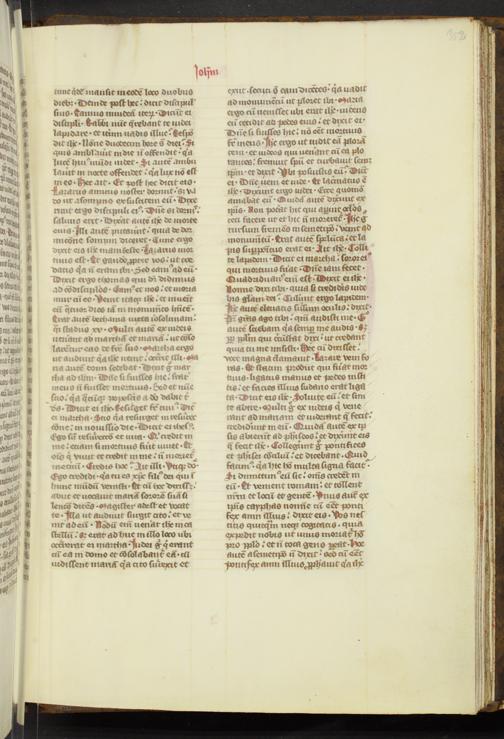 Johīs
tunc qidē mansit in eodē loco duobus
dieb; Deinde post hec dicit discipul
suis Eamus in iudeā iterū Dicūt ei
discipuli Rabbi nūc querebant te iudei
lapidare et iterū vadis illuc Respō
dit ihc Nōne duodecim hore sūt diei Si
quis ambulauit in die nō offendit quia
lucē huius mūdi videt Si autē ambu
lauit in nocte offendit quia lux nō est
in eo Hec ait Et post hec dicit eis
Lazarus amicus noster dormit Sed va
do ut a sompno excitem eū Dixe
runt ergo discipuli eius Dñe si dormit
saluus erit Dixerat autē ihc de morte
eius Illi autē putauerūt quia de dor
mitione sompni diceret Tunc ergo
dixit eis ihc manifeste Lazarus mor
tuus est Et gaudeo propter vos ut cre
datis quia nō eram ibi Sed eamus ad eū
Dixit ergo thomas qui dicitur didimus
ad cōdiscipulos Eamus et nos et moria
mur cū eo Venit itaqz ihc et inuenit
eū quatuor dies iā in monumēto hntē
Erat autē bethania iuxta ierosolimam
quasi stadiis xv Multi autē ex iudeis
venerant ad marthā et mariā ut conso
larentur eas de fratre suo Martha ergo
ut audiuit quia ihc venit occurrit illi Ma
ria autē domi sedebat Dixit ergo mar
tha ad ihm Dñe si fuisses hic frater
meus nō fuisset mortuus Sed et nūc
scio quia quecūqz poposceris a deo dabit tibi
deus Dicit ei ihc Resurget frater tuus Dicit
ei martha Scio quia resurget in resurrec
tione in nouissimo die Dicit ei ihc
Ego sum resurrectio et vita Qui credit in
me etiam si mortuus fuerit viuet Et
omnis qui viuit et credit in me nō morietur
in eternū Credis hoc Ait illi Vtiqz dñe
Ego credidi quia tu es xpc filius dei qui in
hunc mūdū venisti Et cū hec dixisset
abiit et vocauit mariā sororē suā si
lentio dicens Magister adest et vocat
te Illa ut audiuit surgit cito et ve
nit ad eū Nōdum enī venerat ihc in ca
stellū sed erat adhuc in illo loco ubi
occurrerat ei martha Iudei ergo qui erant
cū ea in domo et cōsolabantur eā cū
vidissent mariā quia cito surrexit et
exiit secuti sunt eam dicētes quia vadit
ad monumentū ut ploret ibi Maria
ergo cū venisset ubi erat ihc videns
eū cecidit ad pedes eius et dixit ei
Dñe si fuisses hic nō esset mortuus
frater meus Ihc ergo ut vidit eā plorā
tem et iudeos qui venerant cū ea plo
rantes fremuit spū et turbauit semet
ipm et dixit Vbi posuistis eū Dicūt
ei Dñe veni et vide Et lacrimatus est
ihc Dixerūt ergo iudei Ecce quomō
amabat eū Quidā autē dixerūt ex
ipis Non poterat hic qui aperuit oculos
ceci facere ut et hic nō moreretur Ihc ergo
rursum fremens in semetipo venit ad
monumētū Erat autē spelūca et la
pis suppositus erat ei Ait ihc Tolli
te lapidem Dicit ei martha soror eius
qui mortuus fuerat Dñe iam fetet
Quadriduanus enī est Dixit ei ihc
Nonne dixi tibi quia si credideris vide
bis gloriam dei Tulerunt ergo lapidem
Ihc autē eleuatis sursum oculis dixit
Pater gratias ago tibi quia audisti me Ego
autē sciebam quia semper me audis sed
propter pplm qui circūstat dixi ut credant
quia tu me misisti Hec cū dixisset
voce magna clamauit Lazare veni fo
ras Et statim prodiit qui fuerat mor
tuus ligatus manus et pedes insti
tis et facies illius sudario erat liga
ta Dicit eis ihc Soluite eū et sini
te abire Multi ergo ex iudeis qui vene
rant ad mariam et viderant que fecit
crediderunt in eū Quidā autē ex ip
sis abierūt ad phariseos et dixerunt eis
que fecit ihc Collegerunt ergo pontifices
et pharisei cōsiliū et dicebant Quid
facimus quia hic homo multa signa facit
Si dimittimus eū sic omnes credent in
eū Et venient romani et tollent
nostrū et locū et gentē Vnus autē ex
ipis cayphas nomine cū esset ponti
fex anni illius dixit eis Vos nesci
tis quicqm nec cogitatis quia
expedit nobis ut unus moriatur homo
pro pplo et nō tota gens pereat Hoc
autē a semetipo nō dixit sed cū esset
pontifex anni illius prophetauit quia ihc